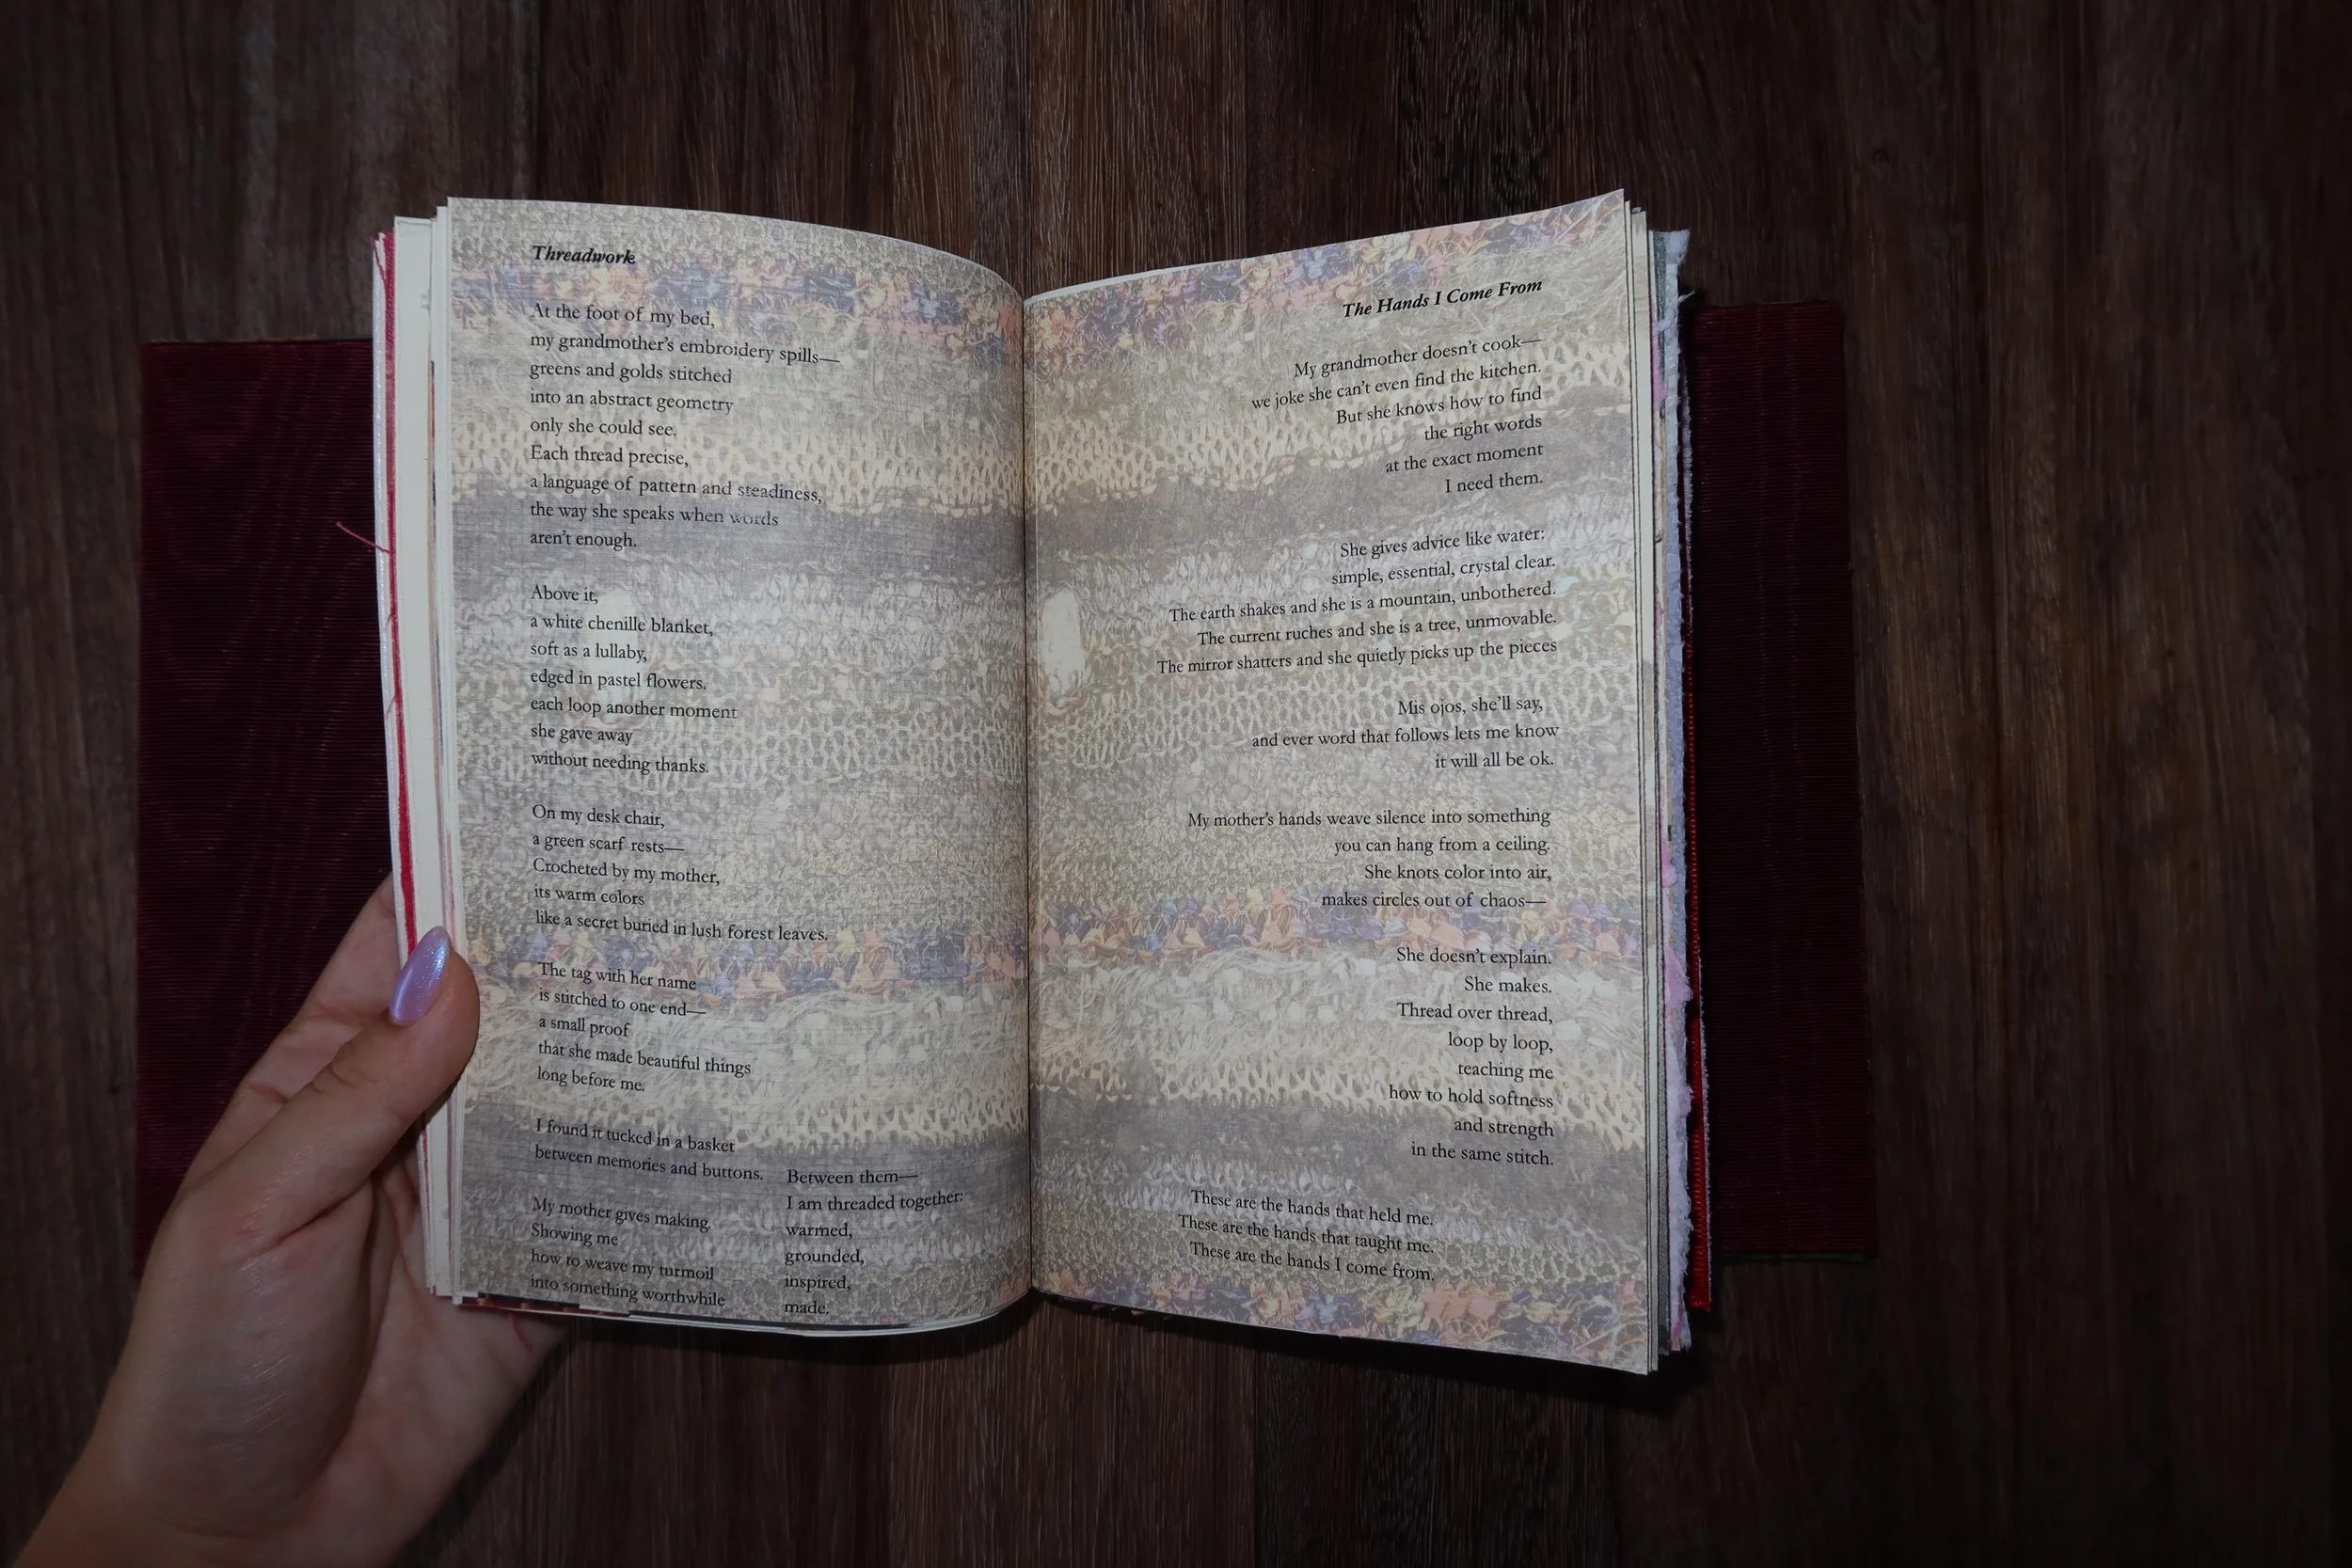 Threadwork
At the foot of my bed,
my grandmother's embroidery spills—
greens and golds stitched
into an abstract geometry
only she could see.
Each thread precise,
a language of pattern and steadiness,
the way she speaks when words
aren't enough.
Above it,
a white chenille blanket,
soft as a lullaby,
edged in pastel flowers.
each loop another moment
she gave away
without needing thanks.
On my desk chair,
a green scarf rests—
Crocheted by my mother,
its warm colors
like a secret buried in lush forest leaves.
The tag with her name
is stitched to one end—
a small proof
that she made beautiful things
long before me.
I found it tucked in a basket
between memories and buttons.
My mother gives making.
Showing me
how to weave my turmoil
into something worthwhile
Between them—
I am threaded together:
warmed,
grounded,
inspired,
made.
The Hands I Come From
My grandmother doesn't cook—
we joke she can't even find the kitchen.
But she knows how to find
the right words
at the exact moment
I need them.
She gives advice like water:
simple, essential, crystal clear.
The earth shakes and she is a mountain, unbothered.
The current ruches and she is a tree, unmovable.
The mirror shatters and she quietly picks up the pieces
Mis ojos, she'll say,
and ever word that follows lets me know
it will all be ok.
My mother's hands weave silence into something
you can hang from a ceiling.
She knots color into air,
makes circles out of chaos—
She doesn't explain.
She makes.
Thread over thread,
loop by loop,
teaching me
how to hold softness
and strength
in the same stitch.
These are the hands that held me.
These are the hands that taught me.
These are the hands I come from.